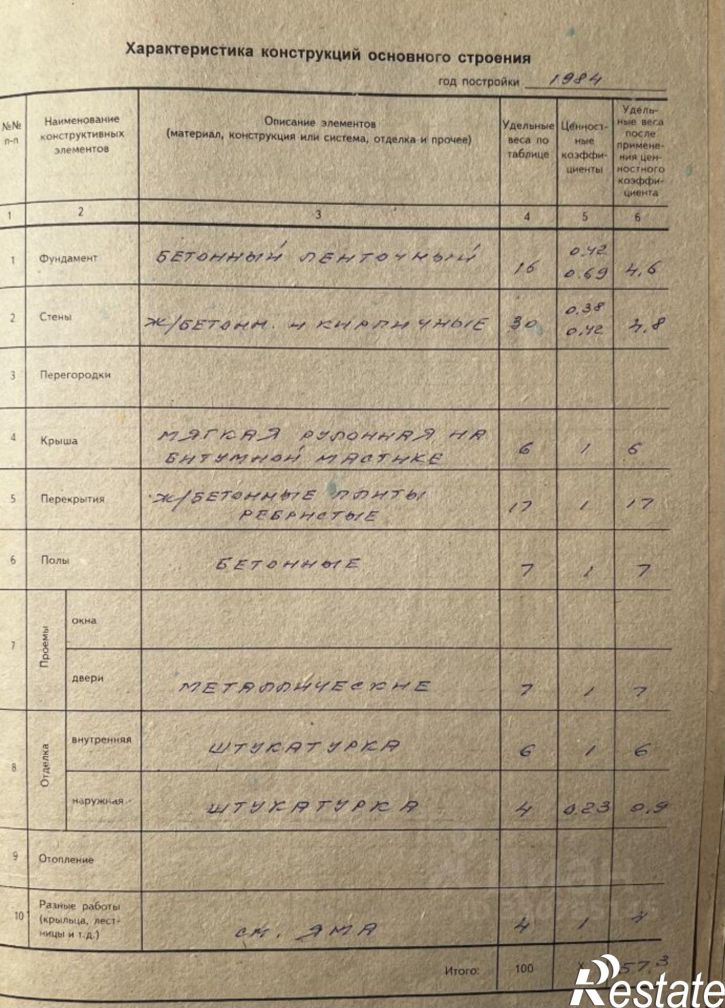 Характеристика конструкций основного строения
год постройки 1984
№№ п-п | Наименование конструктивных элементов | Описание элементов (материал, конструкция или система, отделка и прочее) | Удельные веса по таблице | Ценност-ные коэффи-циенты | Удель-ные веса после примене-ния цен-ностного коэффи-циента
1 2 3 4 5 6
1 Фундамент БЕТОННЫЙ ЛЕНТОЧНЫЙ 16 0.42 0.69 4,6
2 Стены Ж/БЕТОНН. И КИРПИЧНЫЕ 30 0.38 0.42 4,8
3 Перегородки
4 Крыша МЯГКАЯ РУЛОННАЯ НА
БИТУМНОЙ МАСТИКЕ 6 1 6
5 Перекрытия Ж/БЕТОННЫЕ ПЛИТЫ
РЕБРИСТЫЕ 17 1 17
6 Полы БЕТОННЫЕ 7 1 7
7 Проемы окна
двери МЕТАЛЛИЧЕСКИЕ 7 1 7
8 Отделка внутренняя ШТУКАТУРКА 6 1 6
наружная ШТУКАТУРКА 4 0.23 0,9
9 Отопление
10 Разные работы
(крыльца, лест-
ницы и т.д.) СМ. ЯМА 4 1 4
Итого: 100 X 57,3
Restate